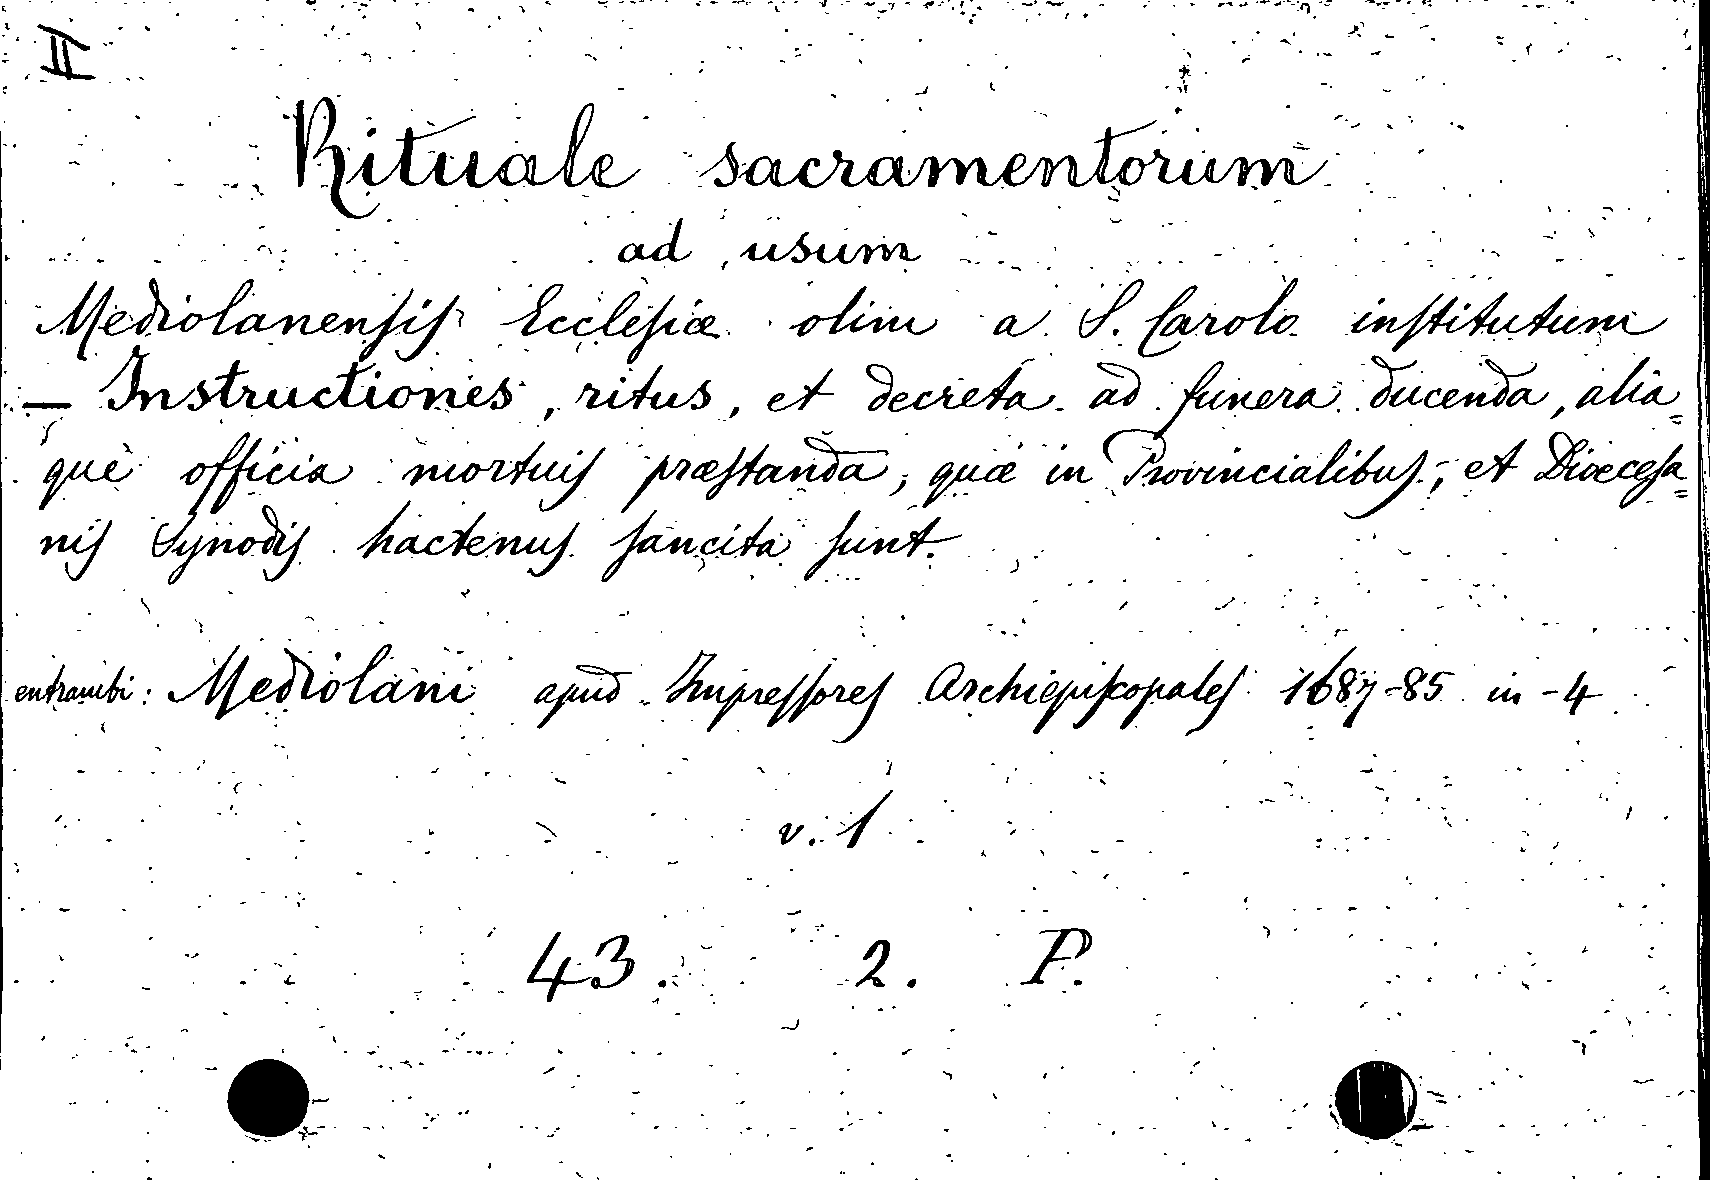 II
Rituale sacramentorum
ad usum
Mediolanensis Ecclesiæ olim a S. Carolo institutum
— Instructiones, ritus, et decreta ad funera ducenda, alia=
que officia mortuis præstanda, quæ in Provincialibus, et Diœcesa=
nis Synodis hactenus sancita sunt.
entrambi: Mediolani apud Impressores Archiepiscopales 1687-85 in-4
v. 1
43. 2. P.